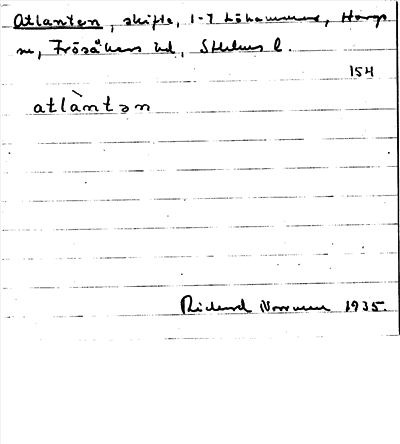 Atlanten, skifte, 1-7 Löhammar, Hargs
sn, Frösåkers hd, Sthlms l.
154
atlàntən
Rickard Norrman 1935.